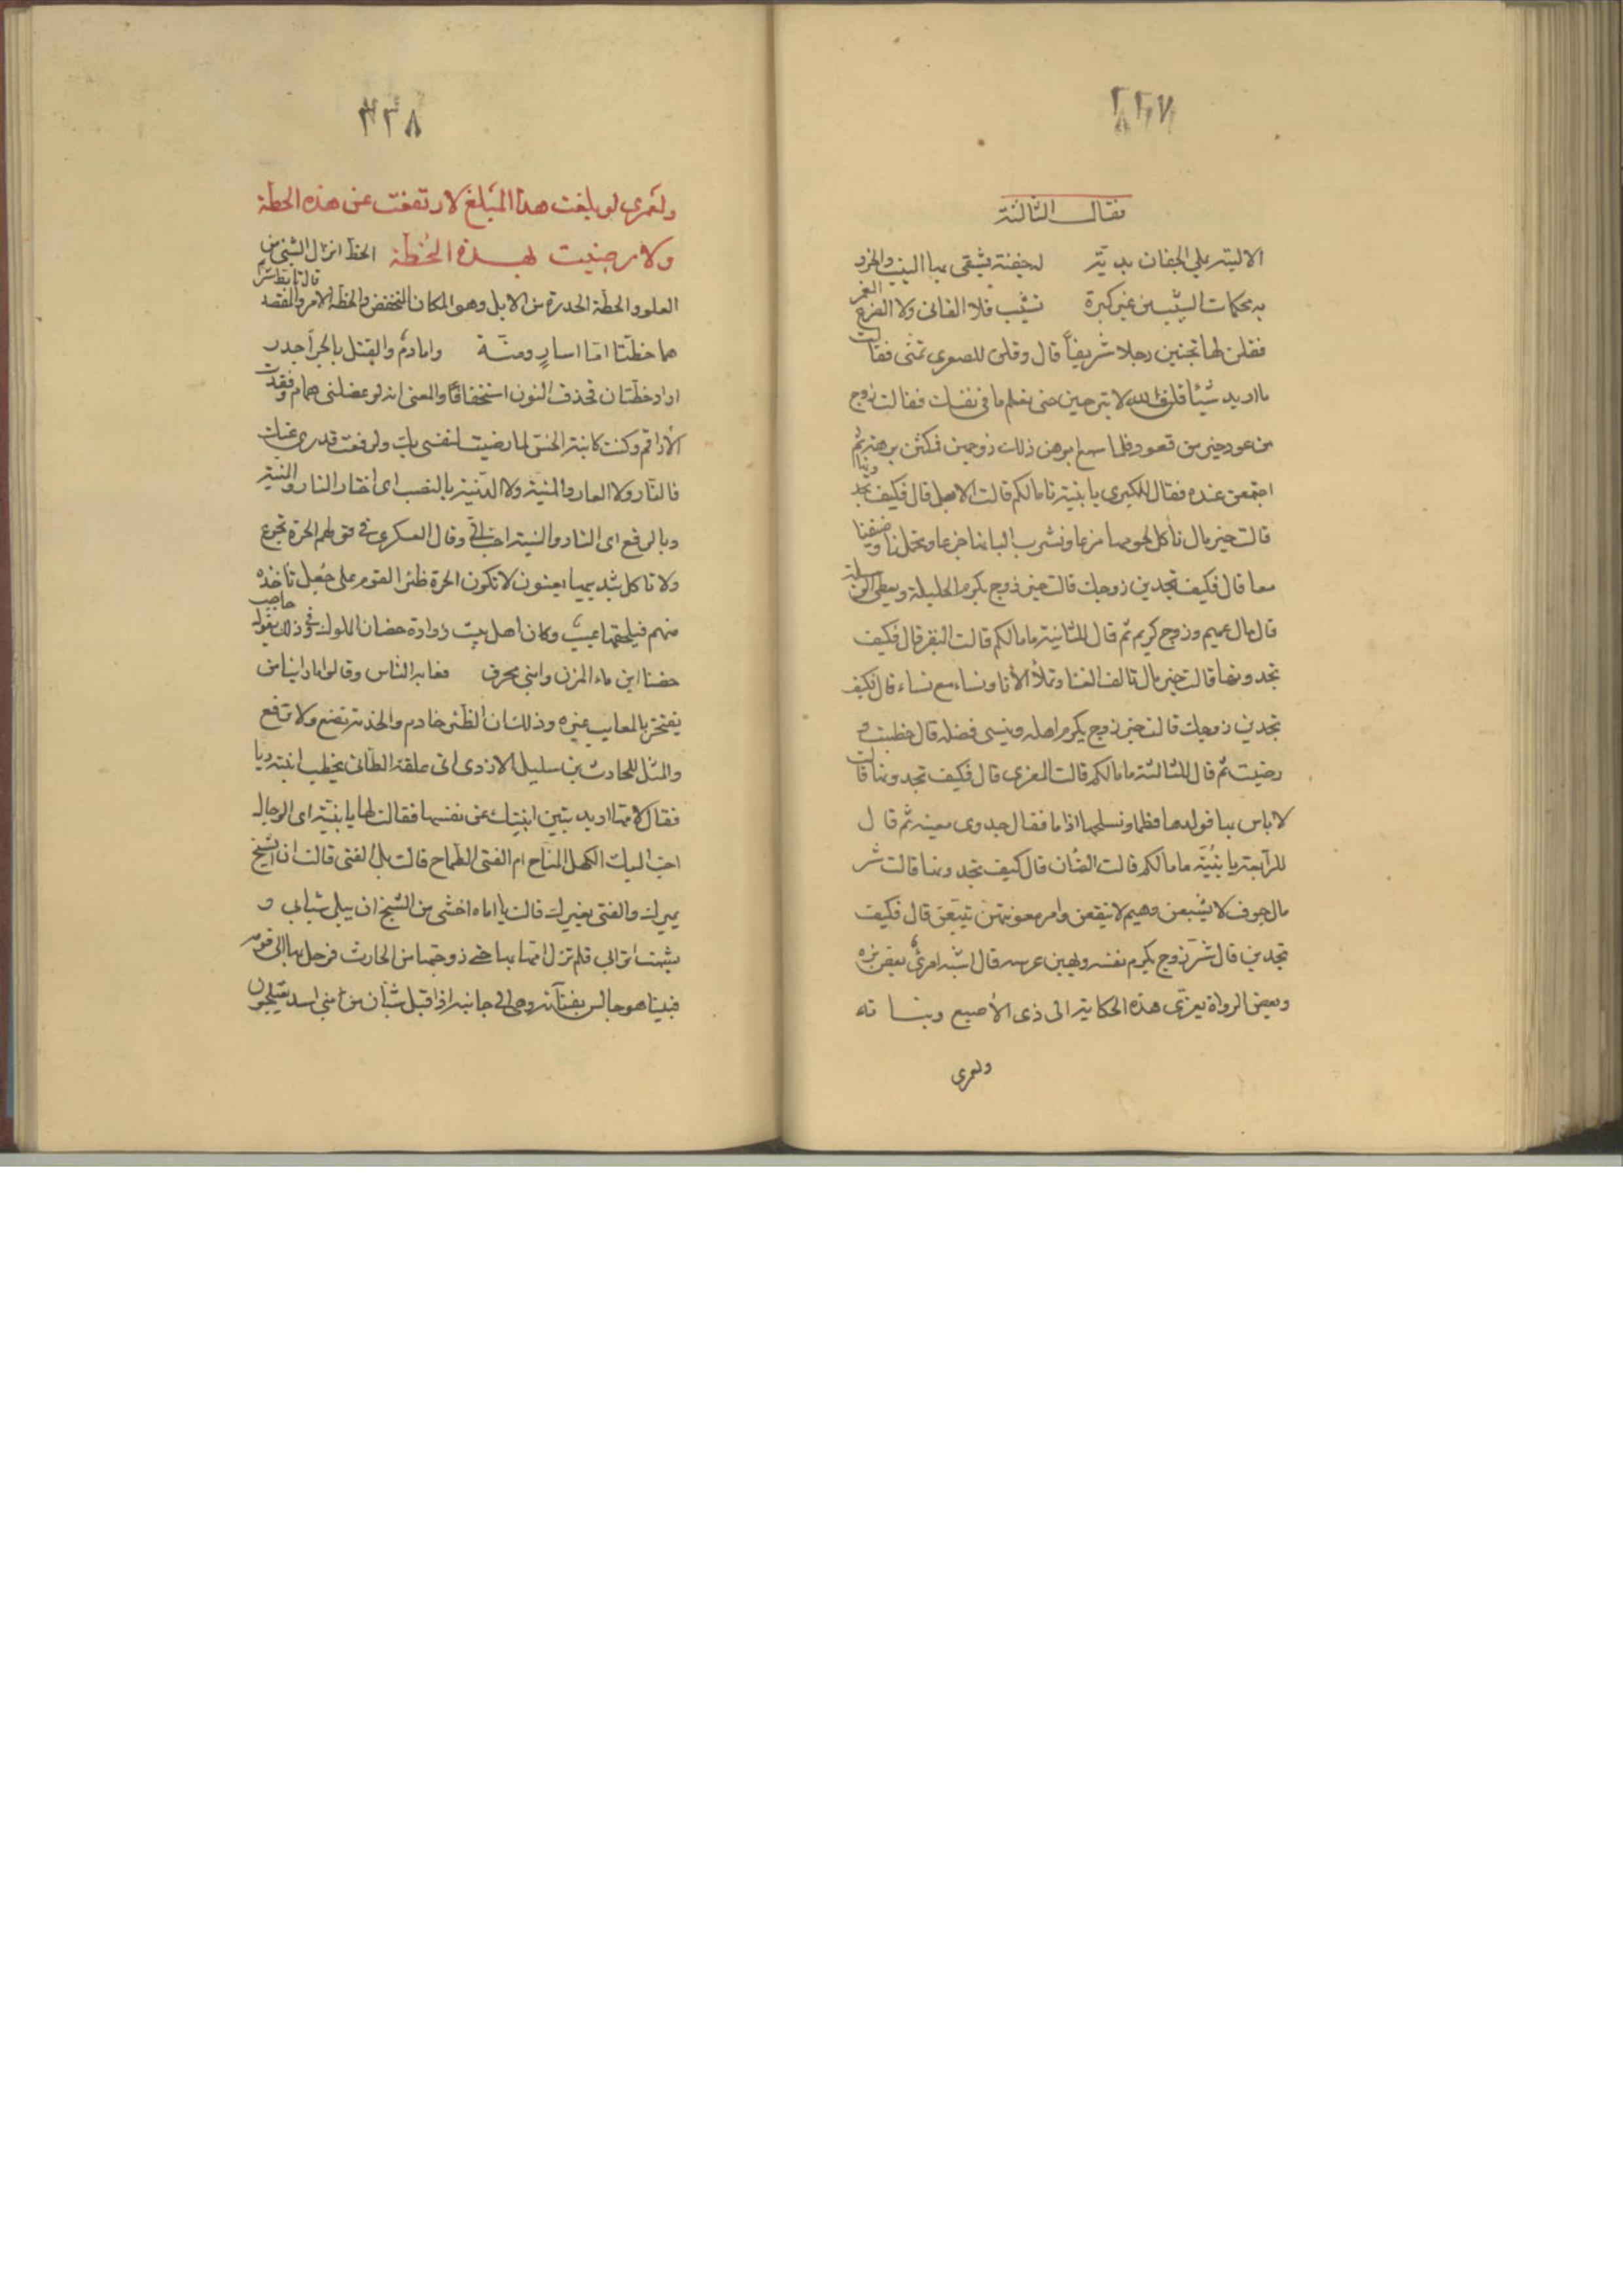 ٣٣٧
فقالت الثالثة
الا ليته يملي الجفان بديّة له جفنة يشقى بها النيب والجزر
به محكمات الشيب من غير كبرة تشيب فلا الفانى ولا الضرع الغمر
فقلن لها تحبين رجلا شريفاً قال وقلن للصغرى تمنى فقالت
ما اريد شيئا قلن والله لا تبرحين حتى نعلم ما فى نفسك فقالت زوج
من عود خير من قعود فلما سمع ابوهن ذلك زوجهن فمكثن برهة ثم
اجتمعن عنده فقال للكبرى يا بنية ما مالكم قالت الابل قال فكيف تجدونها
قالت خير مال ناكل لحومها مزعا ونشرب البانها جرعا وتحملنا وضعيفنا
معا قال فكيف تجدين زوجك قالت خير زوج يكرم الحليلة ويعطى الوسيلة
قال مال عميم وزوج كريم ثم قال للثانية ما مالكم قالت البقر قال فكيف
تجدونها قالت خير مال تالف الفنا وتملأ الأنا ونساء مع نساء قال فكيف
تجدين زوجك قالت خير زوج يكرم اهله وينسى فضله قال حظيت و
رضيت ثم قال للثالثة ما مالكم قالت المعزى قال فكيف تجدونها قالت
لا باس بها نولدها فطما ونسلخها ادما فقال جدوى مغنية ثم قال
للرابعة يا بنيّة ما مالكم قالت الضان قال كيف تجدونها قالت شر
مال جوف لا يشبعن وهيم لا ينقعن وامر مغويتهن يتبعن قال فكيف
تجدين قال شر زوج يكرم نفسه ويهين عرسه قال اشبه امرئ بعض بزه
وبعض الرواة يعزى هذه الحكاية الى ذى الأصبع وبناته
ولعمرى
٣٣٨
ولعمرى لو بلغت هذا المبلغ لارتفعت عن هذه الحطة
ولا رضيت بهذه الخطة الحط انزال الشئ من
العلو والحطة الحدرة من الابل وهو المكان المنخفض والخطة الامر والقصد قال تابط شرا
هما خطتا اما اسارٍ ومنّة واما دم والقتل بالحرّ اجدر
اراد خطتان فحذف النون استخفافا والمعنى انه لو عضلنى همام وفقدت
الأراقم وكنت كابنة الخس لما رضيت لنفسى بك ولرفعت قدرى عنك
فالنار ولا العار والمنية ولا الدنية بالنصب اى اختار النار والمنية
وبالرفع اى النار والمنية احب الىّ وقال العسكرى فى قولهم الحرة تجوع
ولا تاكل بثدييها يعنون لا تكون الحرة ظئر القوم على جُعل تأخذه
منهم فيلحقها عيب وكان اهل بيت زرارة حضان الملوك وفى ذلك يقول حاجب
حضنا ابن ماء المزن وابنى محرق فعابه الناس وقالوا ما راينا من
يفتخر بالمعايب غيره وذلك ان الظئر خادم والخدمة تضع ولا ترفع
والمثل للحارث بن سليل الازدى اتى علقة الطائى يخطب ابنته ريا
فقال لامها اريد يتبين ابنتك عن نفسها فقالت لها يا بنيّة اى الرجال
احب اليك الكهل المناح ام الفتى الطماح قالت بل الفتى قالت ان الشيخ
يميرك والفتى يغيرك قالت يا اماه اخشى من الشيخ ان يبلى شبابى و
يشمت اترابى فلم تزل امها بها حتى زوجتها من الحارث فرحل بها الى قومه
فبينا هو جالس بفنائه وهى الى جانبه اذ اقبل شبان من بنى اسد يعتلجون